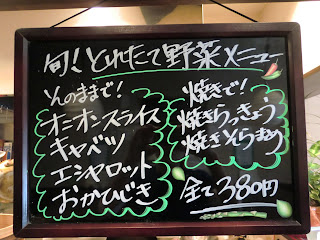 旬くとれたて野菜メニュー
そのままで!
オニオンスライス
キャベツ
エシャロット
おかひじき
焼きで!
焼きらっきょう
焼きそらまめ
全て380円